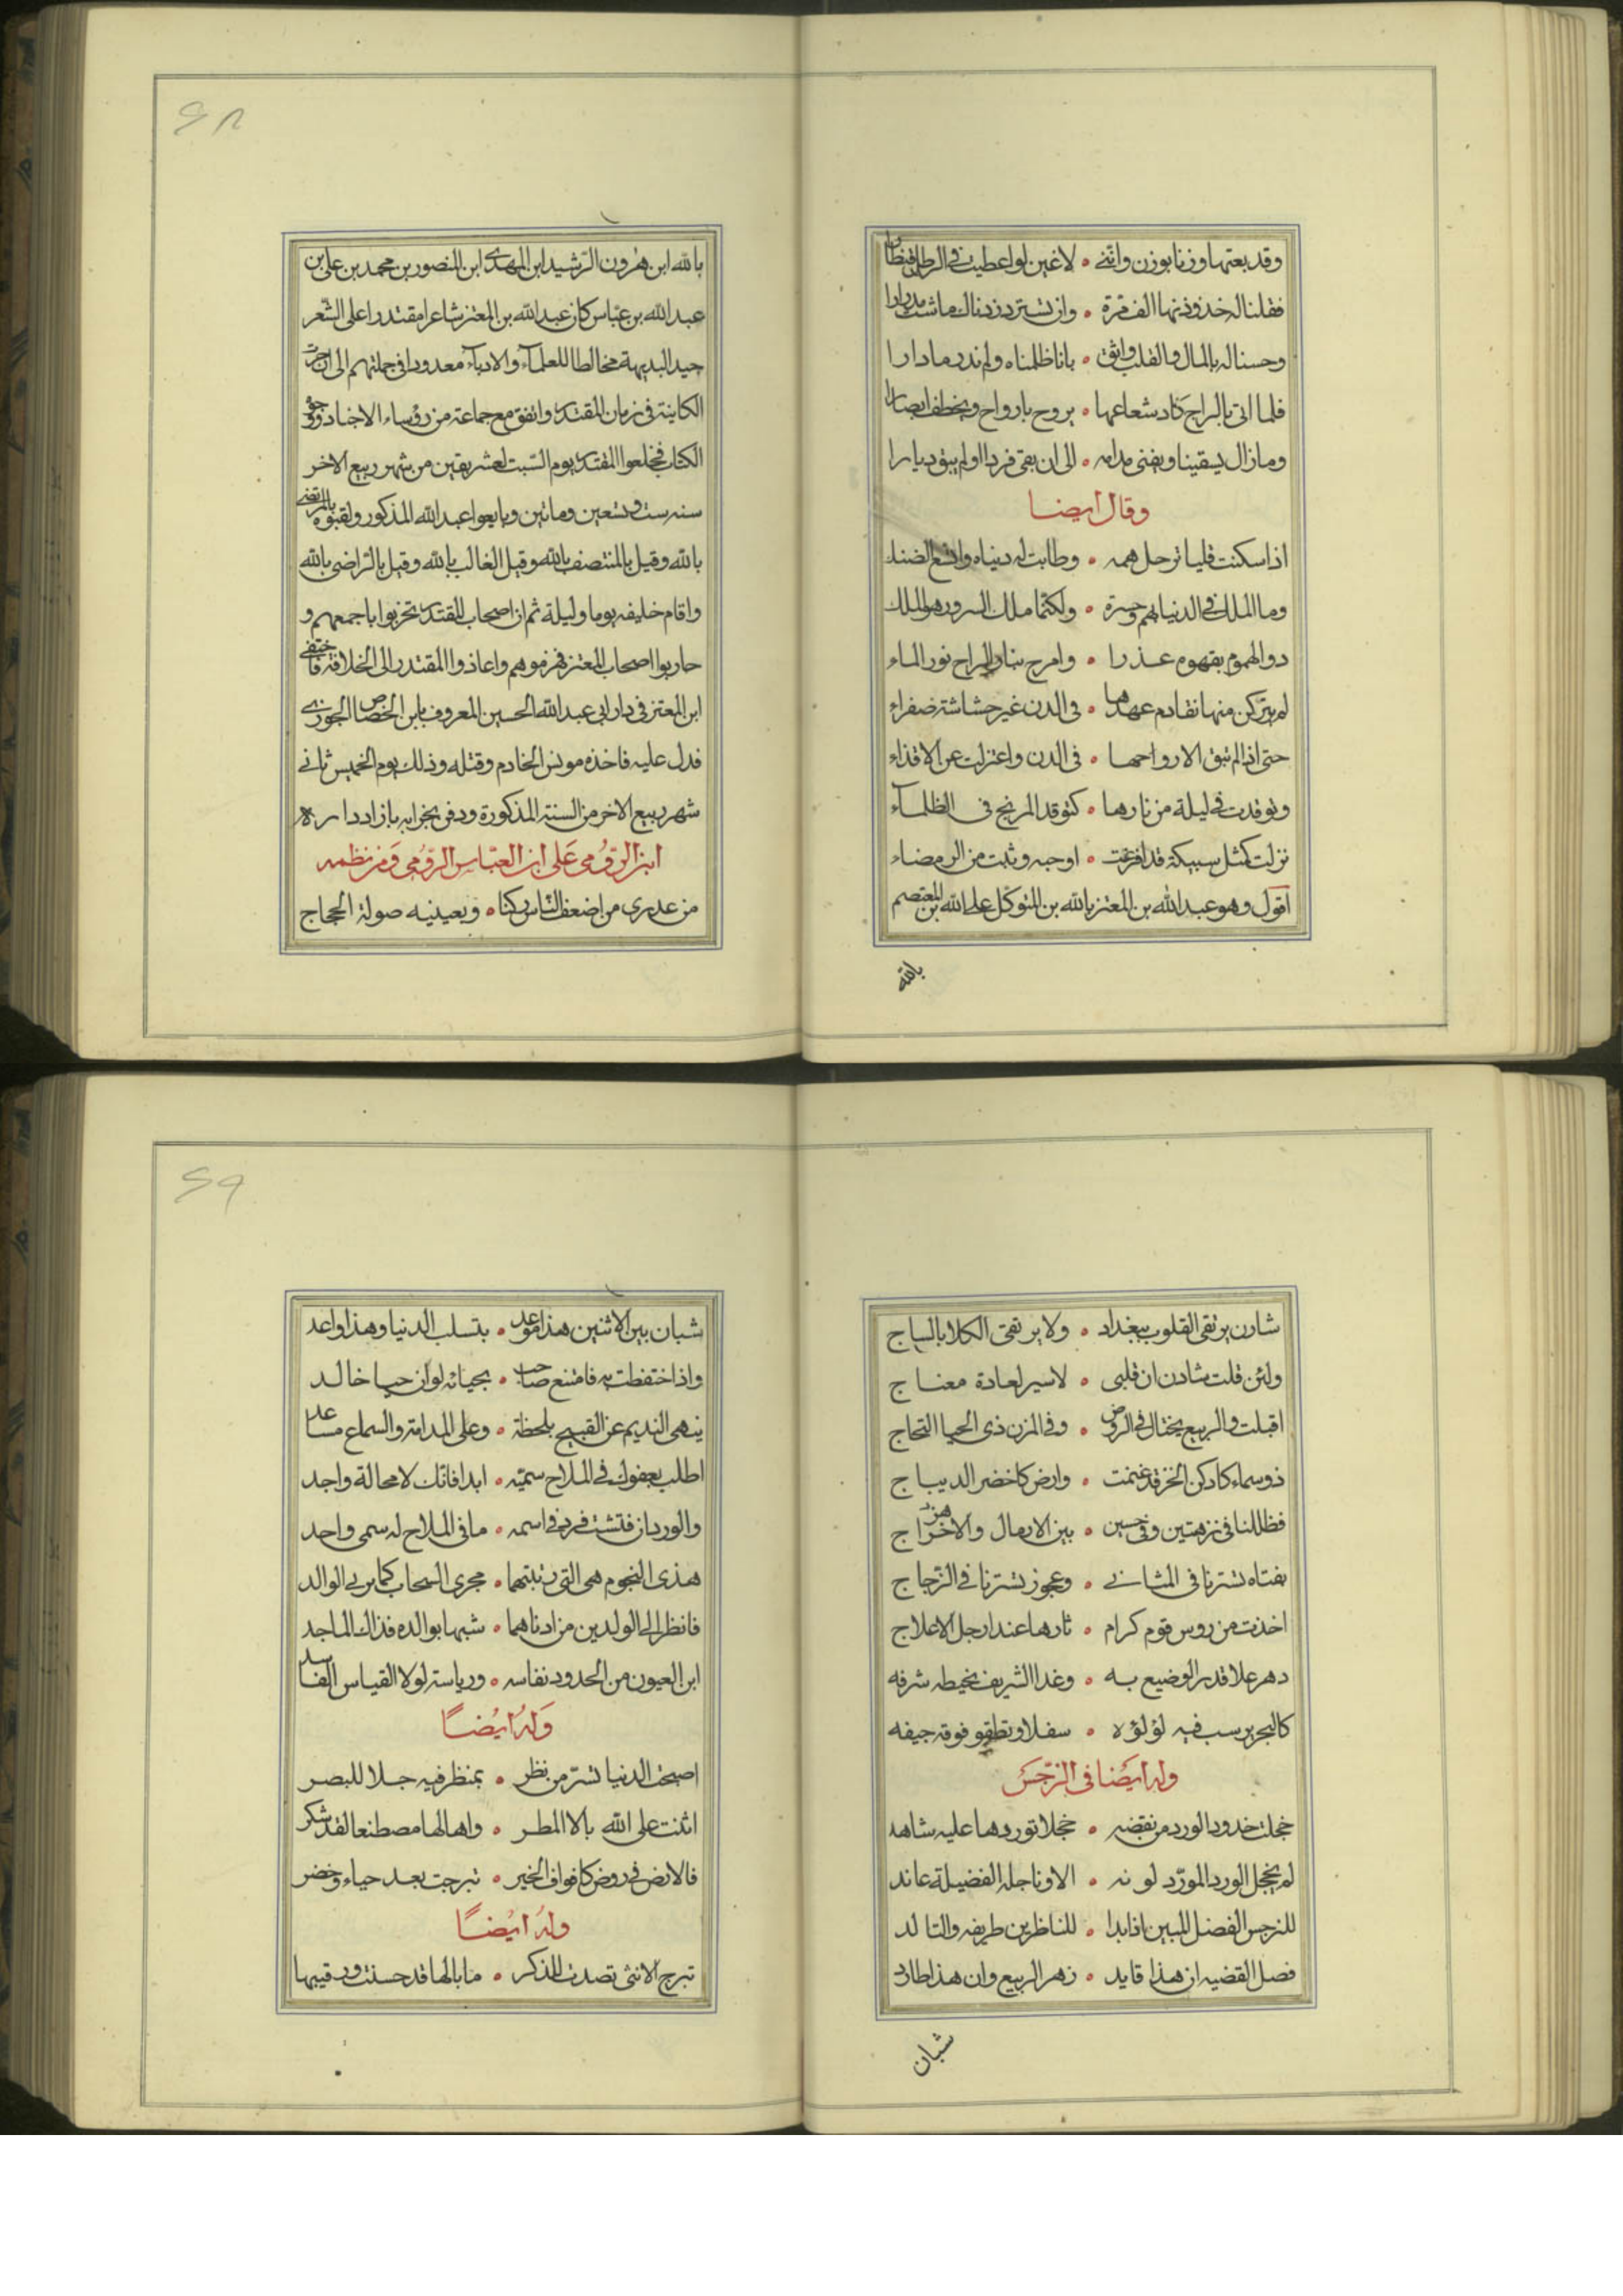 وقد بعتها وزنا بوزن وانني • لاغبن لو اعطيت في الرطل قنطارا
فقلنا له خذ وزنها الف مرة • وان تستزد زدناك ما شئت مدرارا
وحسنا له بالمال والقلب واثق • بانا ظلمناه ولم ندر ما دارا
فلما اتى بالراح كاد شعاعها • يروح بارواح ويخطف ابصارا
وما زال يسقينا ويفنى مدامه • الى ان بقى فردا ولم يبق ديارا
وقال ايضا
اذا سكنت قلبا ترحل همه • وطابت له دنياه واتسع الضنك
وما الملك في الدنيا بهم وحسرة • ولكنما ملك السرور هو الملك
دو الهموم بقهوه عذرا • وامرج بنار الراح نور الماء
لم يتركن منها تقادم عهدها • في الدن غير حشاشته صفراء
حتى اذا لم تبق الا رواحها • في الدن واعتزلت عن الاقذاء
وتوقدت في ليلة من نارها • كتوقد المريخ في الظلمآء
نزلت كمثل سبيكة قد افرغت • او حبه وثبت من الرمضاء
اقول وهو عبد الله بن المعتز بالله بن المتوكل على الله بن المعتصم
بالله
٢٨
بالله ابن هرون الرشيد ابن المهدى ابن المنصور بن محمد بن على بن
عبد الله بن عباس كان عبد الله بن المعتز شاعرا مقتدرا على الشعر
جيد البديهة مخالطا للعلمآء والادبآء معدودا في جملتهم الى ان جرت
الكاينة في زمان المقتدر واتفق مع جماعة من رؤساء الاجناد ووجوه
الكتاب فخلعوا المقتدر يوم السبت لعشر بقين من شهر ربيع الاخر
سنه ست وتسعين وماتين وبايعوا عبد الله المذكور ولقبوه بالمرتضى
بالله وقيل بالمنتصف بالله وقيل الغالب بالله وقيل بالراضى بالله
واقام خليفه يوما وليلة ثم ان اصحاب المقتدر تحزبوا باجمعهم و
حاربوا اصحاب المعتز فهزموهم واعاذوا المقتدر الى الخلافة فاختفى
ابن المعتز في دار ابى عبد الله الحسين المعروف بابن الخصاص الجوزى
فدل عليه فاخذه مونس الخادم وقتله وذلك يوم الخميس ثانى
شهر ربيع الاخر من السنة المذكورة ودفن بخرابه بازا داره
ابن الرومى على ابن العباس الرومى ومن نظمه
من عديرى من اضعف الناس ركنا • وبعينيه صولة الحجاج
شادن يرتقى القلوب ببغداد • ولا يرتقى الكلا بالساج
ولئن قلت شادن ان قلبى • لاسير لعادة معناج
اقبلت والربيع يختال في الروض • وفي المزن ذى الحيا الثجاج
ذو سماء كادكن الخز قد غيمت • وارض كاخضر الديباج
فظللنا في نزهتين وفي حسين • بين الارمال والاهزاج
بفتاه تسترنا في المثانى • وعجوز تسترنا في الزجاج
اخذت من روس قوم كرام • ثارها عند ارجل الاعلاج
دهر علا قدر الوضيع به • وغدا الشريف يخيطه شرفه
كالبحر يرسب فيه لؤلؤه • سفلا وتطفو فوقه جيفه
وله ايضا في النرجس
خجلت خدود الورد من تفضيه • خجلا توردها عليه شاهد
لم يخجل الورد المورّد لونه • الا وناجله الفضيلة عاند
للنرجس الفضل المبين اذا بدا • للناظرين طريفه والتالد
فصل القضيه ان هذا قايد • زهر الربيع وان هذا طارد
شبان
٢٩
شبان بين الاثنين هذا موعد • بتسلب الدنيا وهذا واعد
واذا احتفظت به فامتنع صاحب • بحياته لو ان حيا خالد
ينهى النديم عن القبيح بلحظة • وعلى المدامة والسماع مساعد
اطلب بعفوك في الملاح سميّه • ابدا فانك لا محالة واجد
والورد ان فتشت فرد في اسمه • ما في الملاح له سمى واحد
هذى النجوم هى التى ربتهما • مجرى السحاب كما يربى الوالد
فانظر الى الولدين من ادناهما • شبها بوالده فذاك الماجد
اين العيون من الحدود نفاسه • ورياسة لولا القياس الفاسد
وله ايضًا
اصبحت الدنيا تسرّ من نظر • بمنظر فيه جلا للبصر
اثنت على الله بالا المطر • واها لها مصطنعا لقد شكر
فالارض في روض كافواف الخير • تبرجت بعد حياء وخضر
وله ايضًا
تبرج الانثى تصدت للذكر • ما بالها قد حسنت ورقيبها